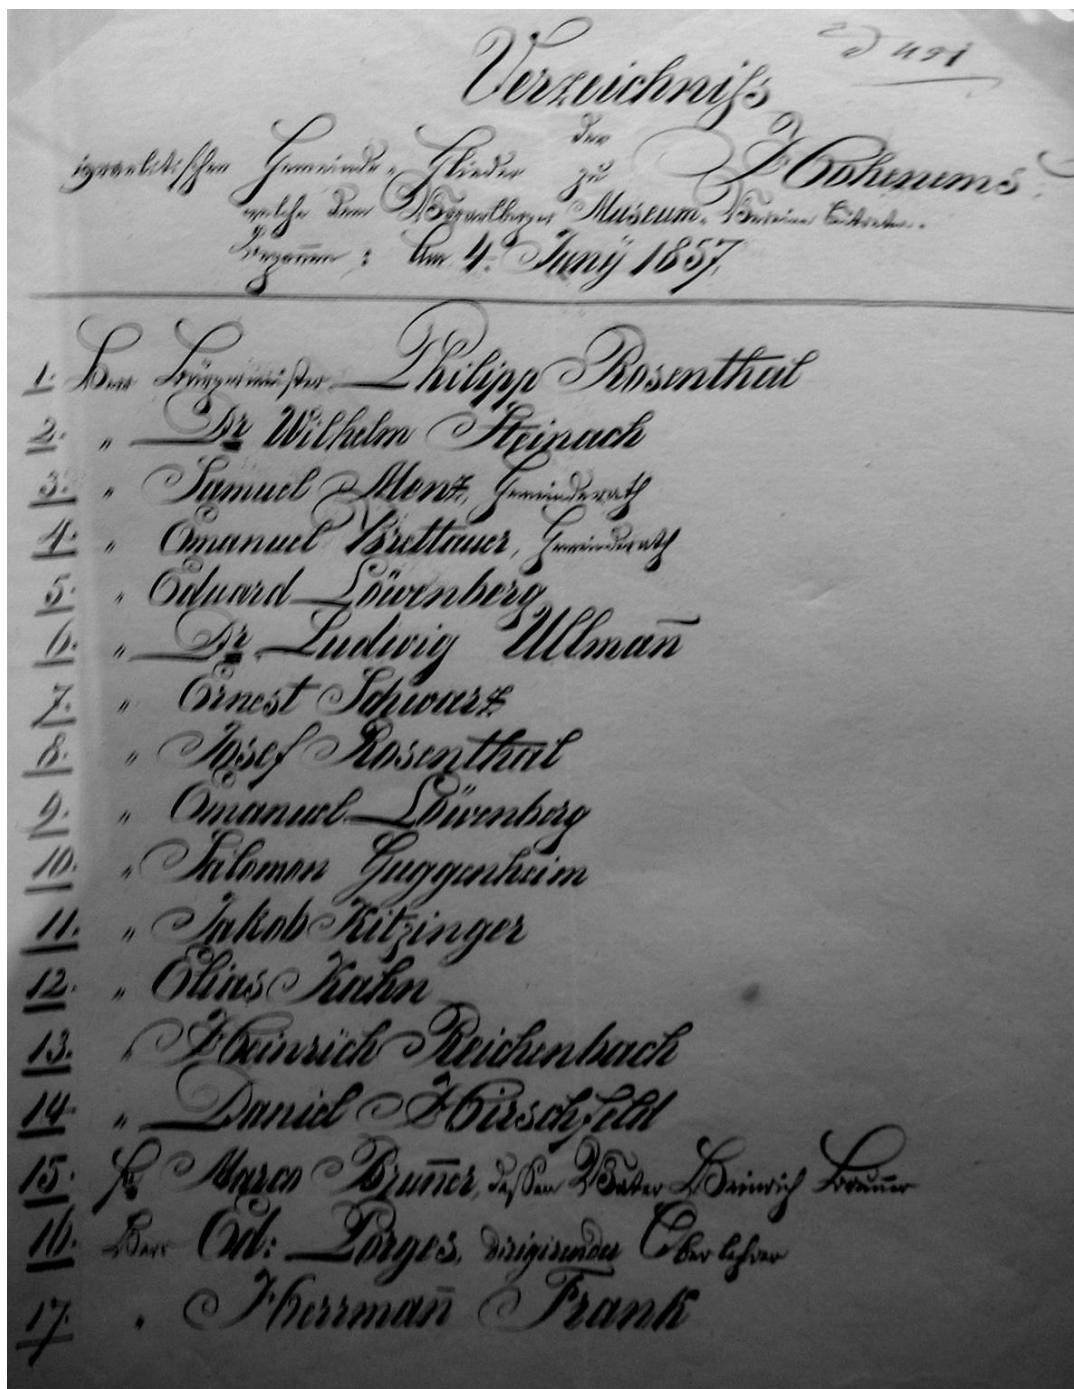 Verzeichniß
der
israelitischen Gemeinde-Glieder zu Hohenems
welche dem Vorarlberger Museum-Vereine beitreten.
begonnen: Am 4. Junÿ 1857.
1. Herr Bürgermeister Philipp Rosenthal
2. " Dr Wilhelm Steinach
3. " Samuel Menz, Gemeinderath
4. " Emanuel Brettauer, Gemeinderath
5. " Eduard Löwenberg
6. " Dr Ludwig Ullmañ
7. " Ernest Schwarz
8. " Josef Rosenthal
9. " Emanuel Löwenberg
10. " Salomon Guggenheim
11. " Jakob Kitzinger
12. " Elias Kahn
13. " Heinrich Reichenbach
14. " Daniel Hirschfeld
15. Marco Bruñer, dessen Vater Heinrich Bruñer
16. Herr Ed: Porges, dirigirender Oberlehrer
17. " Herrmañ Frank